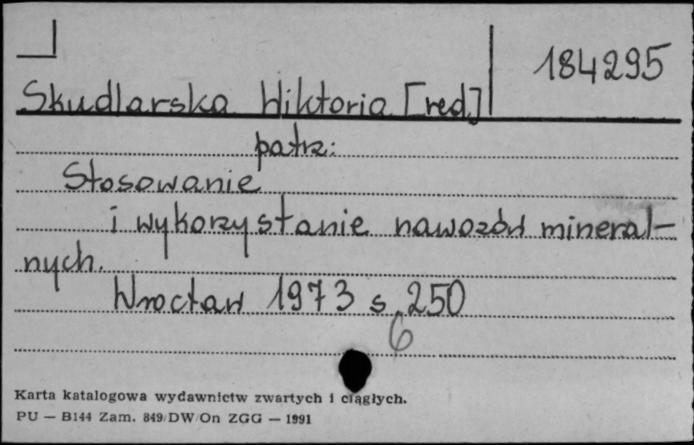 184295
Skudlarska Wiktoria [red.]
patrz:
Stosowanie
i wykorzystanie nawozów mineral-
nych.
Wrocław 1973 s. 250
6
Karta katalogowa wydawnictw zwartych i ciągłych.
PU — B144 Zam. 849/DW/On ZGG — 1991